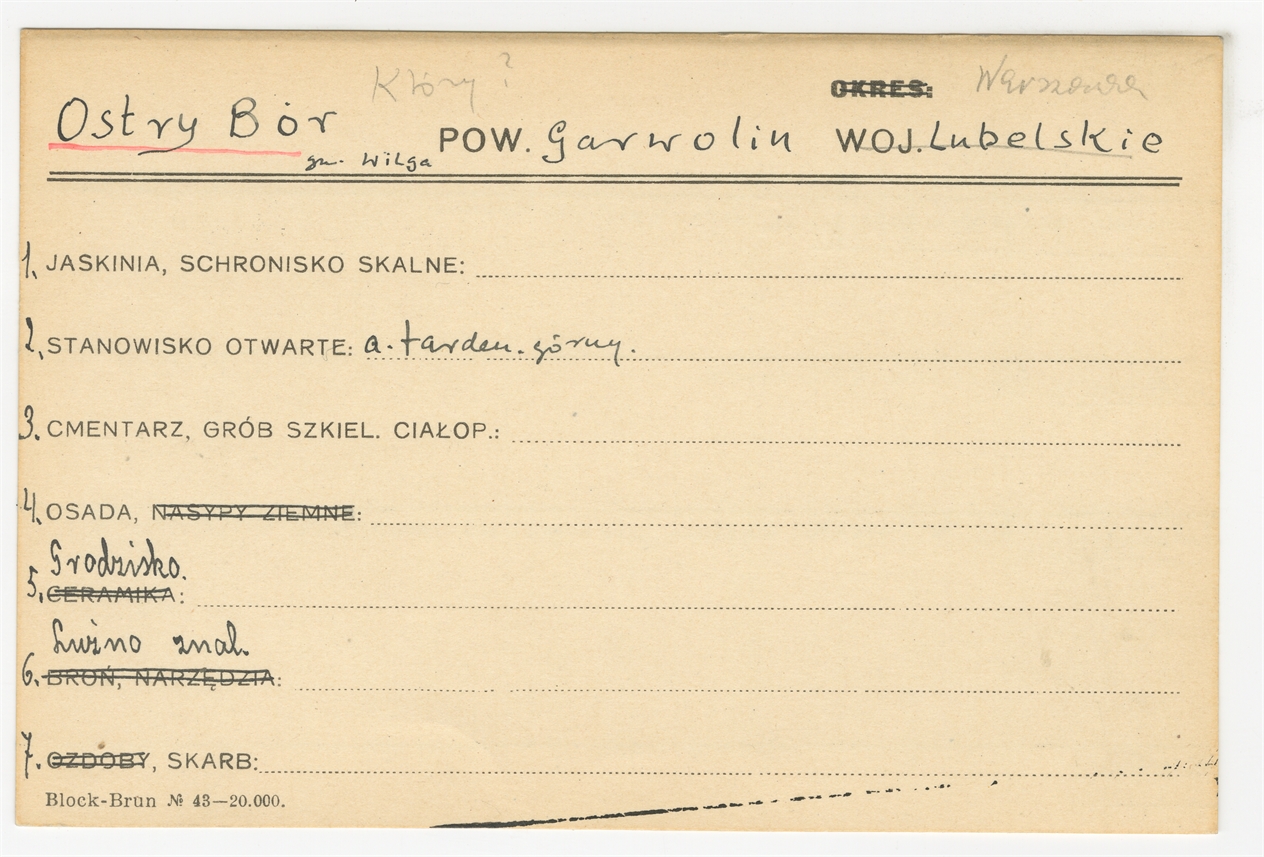 Który? OKRES: Warszawa
Ostry Bór POW. Garwolin WOJ. Lubelskie
gm. Wilga
1. JASKINIA, SCHRONISKO SKALNE:
2. STANOWISKO OTWARTE: a. tarden. górny.
3. CMENTARZ, GRÓB SZKIEL. CIAŁOP.:
4. OSADA, NASYPY ZIEMNE:
Grodzisko.
5. CERAMIKA:
Luźno znal.
6. BROŃ, NARZĘDZIA:
7. OZDOBY, SKARB:
Block-Brun № 43—20.000.